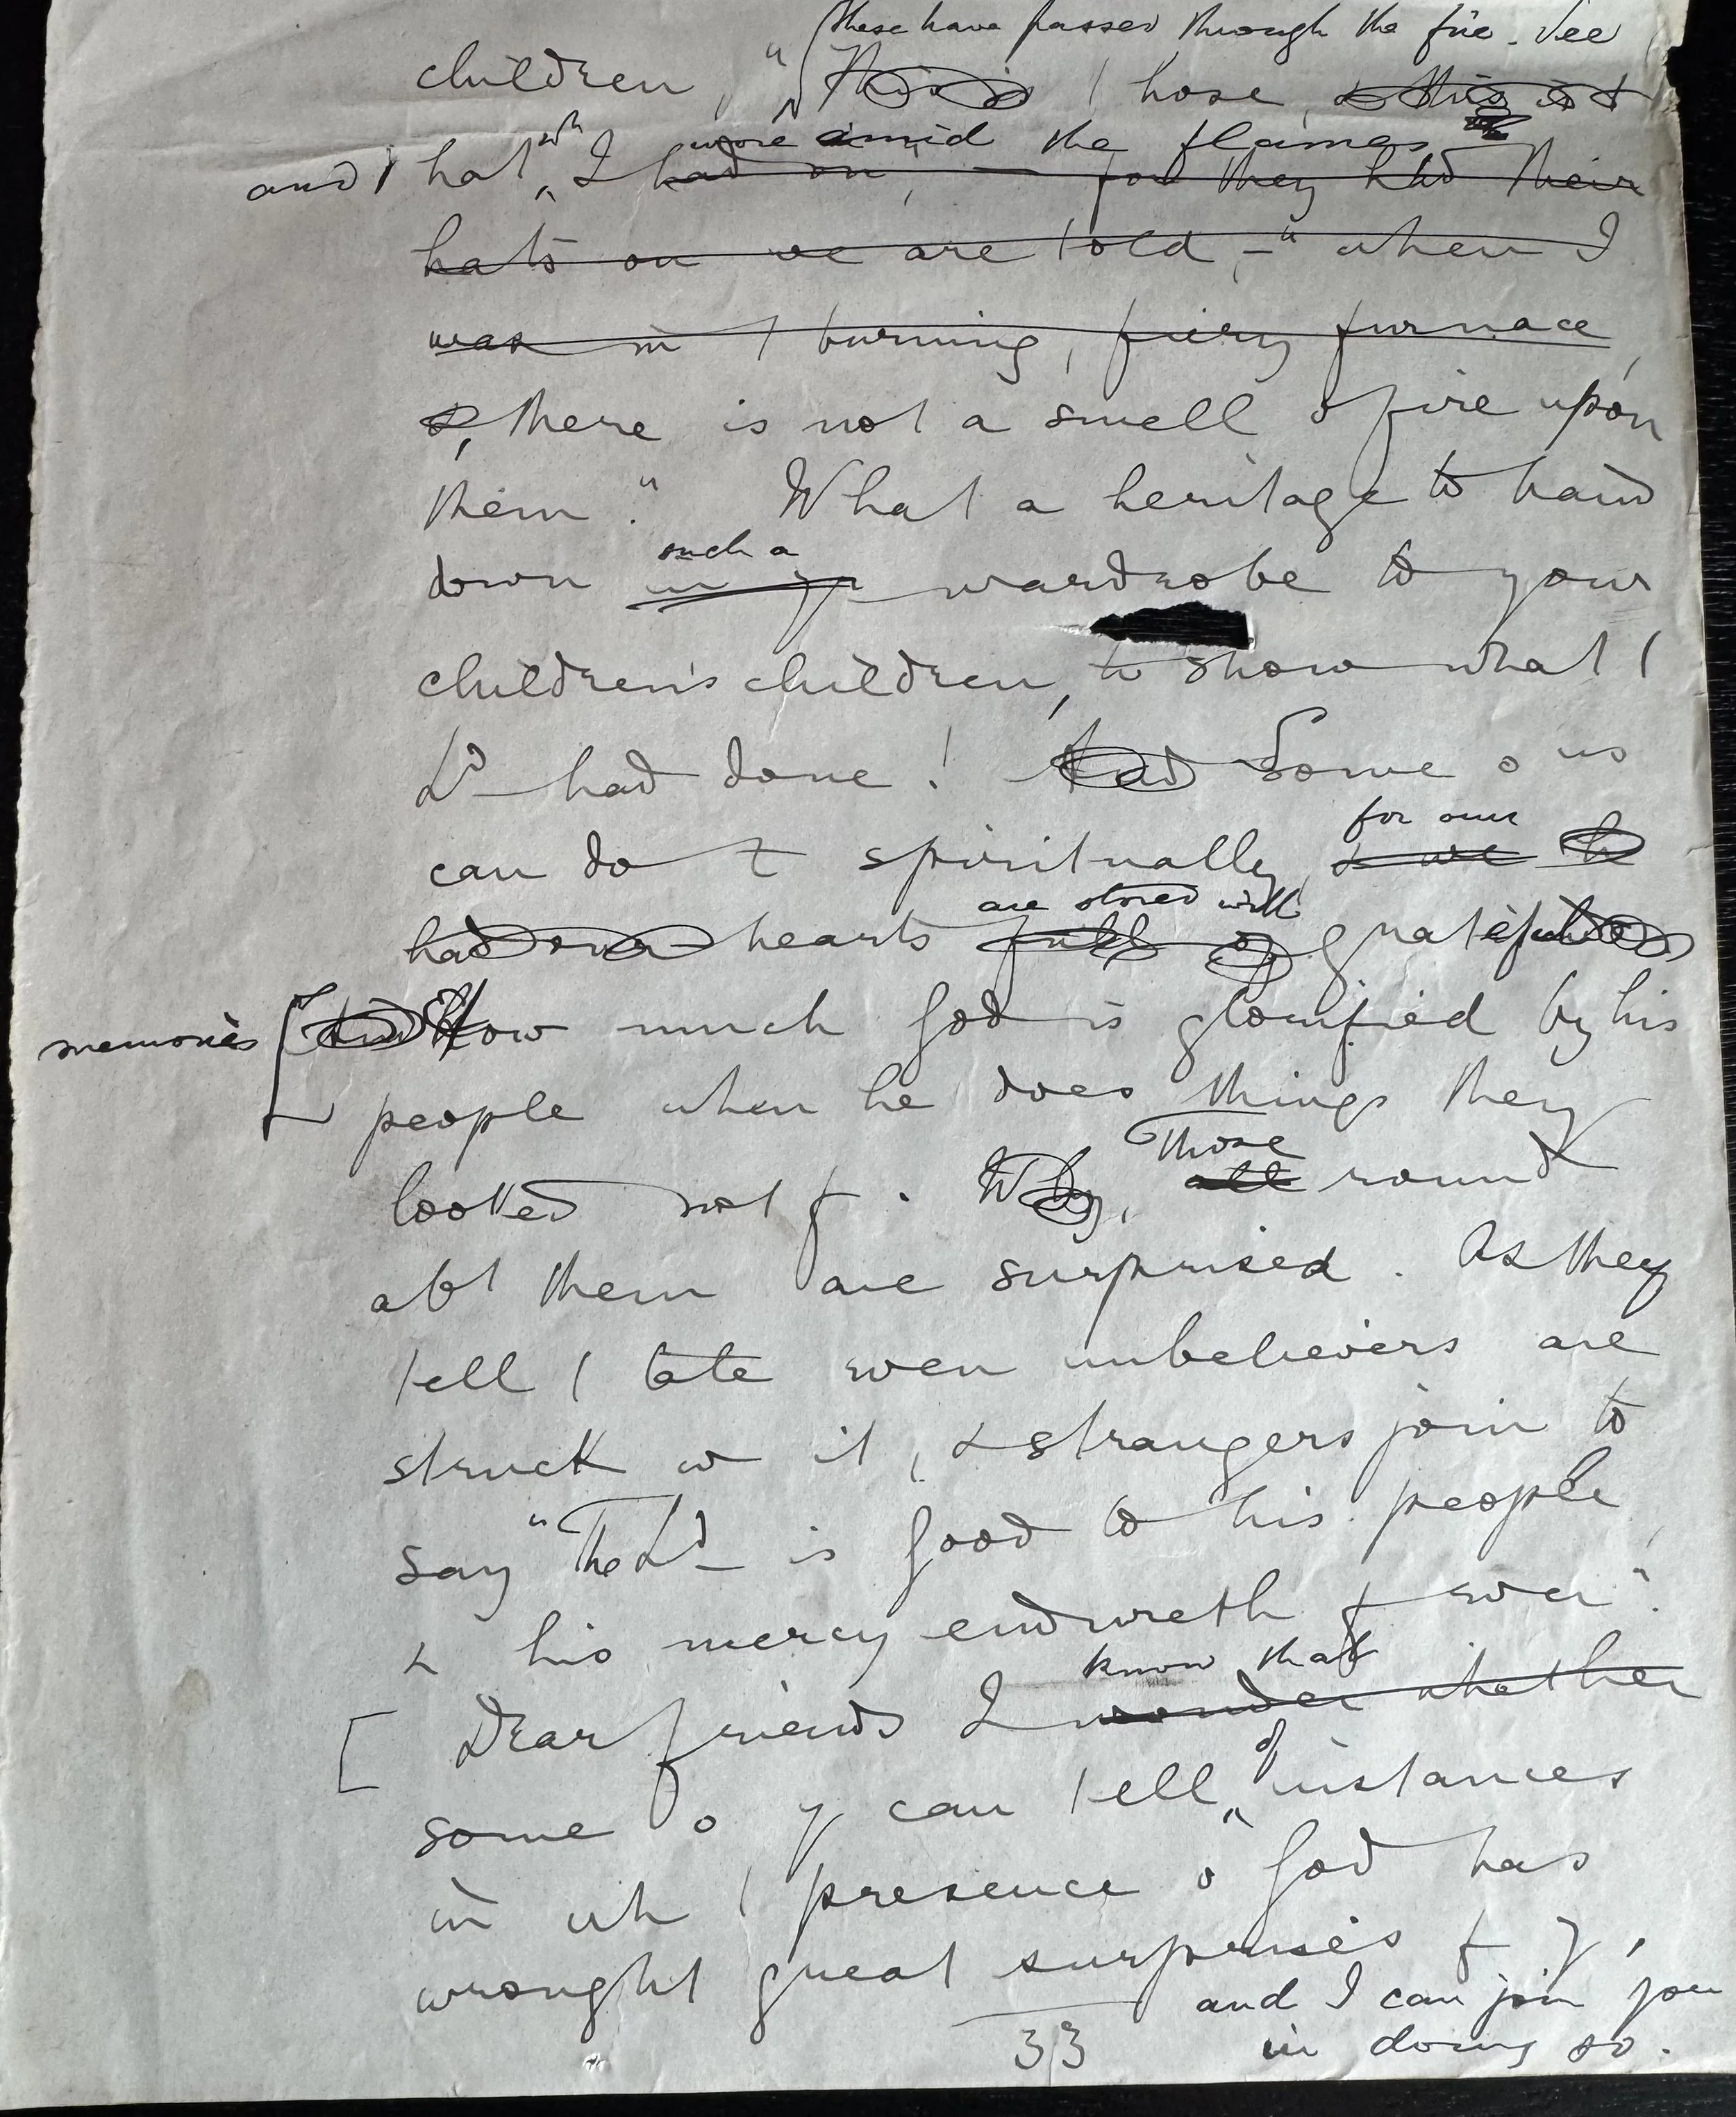 these have passed through the fire. See
children, "This is / hose, & this is /
wore amid the flames
and / hat wh I had on, — for they had their
hats on we are told, —" when I
was in / burning, fiery furnace,
& there is not a smell o fire upon
them." What a heritage to hand
such a
down in yr wardrobe to your
children's children, to show what /
Ld had done! Had Some o us
for our
can do t spiritually, & we h
are stored with
had our hearts full of grateful
memories [ and How much God is glorified by his
people when he does things they
Those
looked not f. Why, all round
abt them are surprised. As they
tell / tale even unbelievers are
struck w it, & strangers join to
say "The Ld is good to his people,
& his mercy endureth f ever".
know that
[ Dear friends I wonder whether
of
some o y can tell instances
in wh / presence o God has
wrought great surprises f y,
and I can join you
33 in doing so.